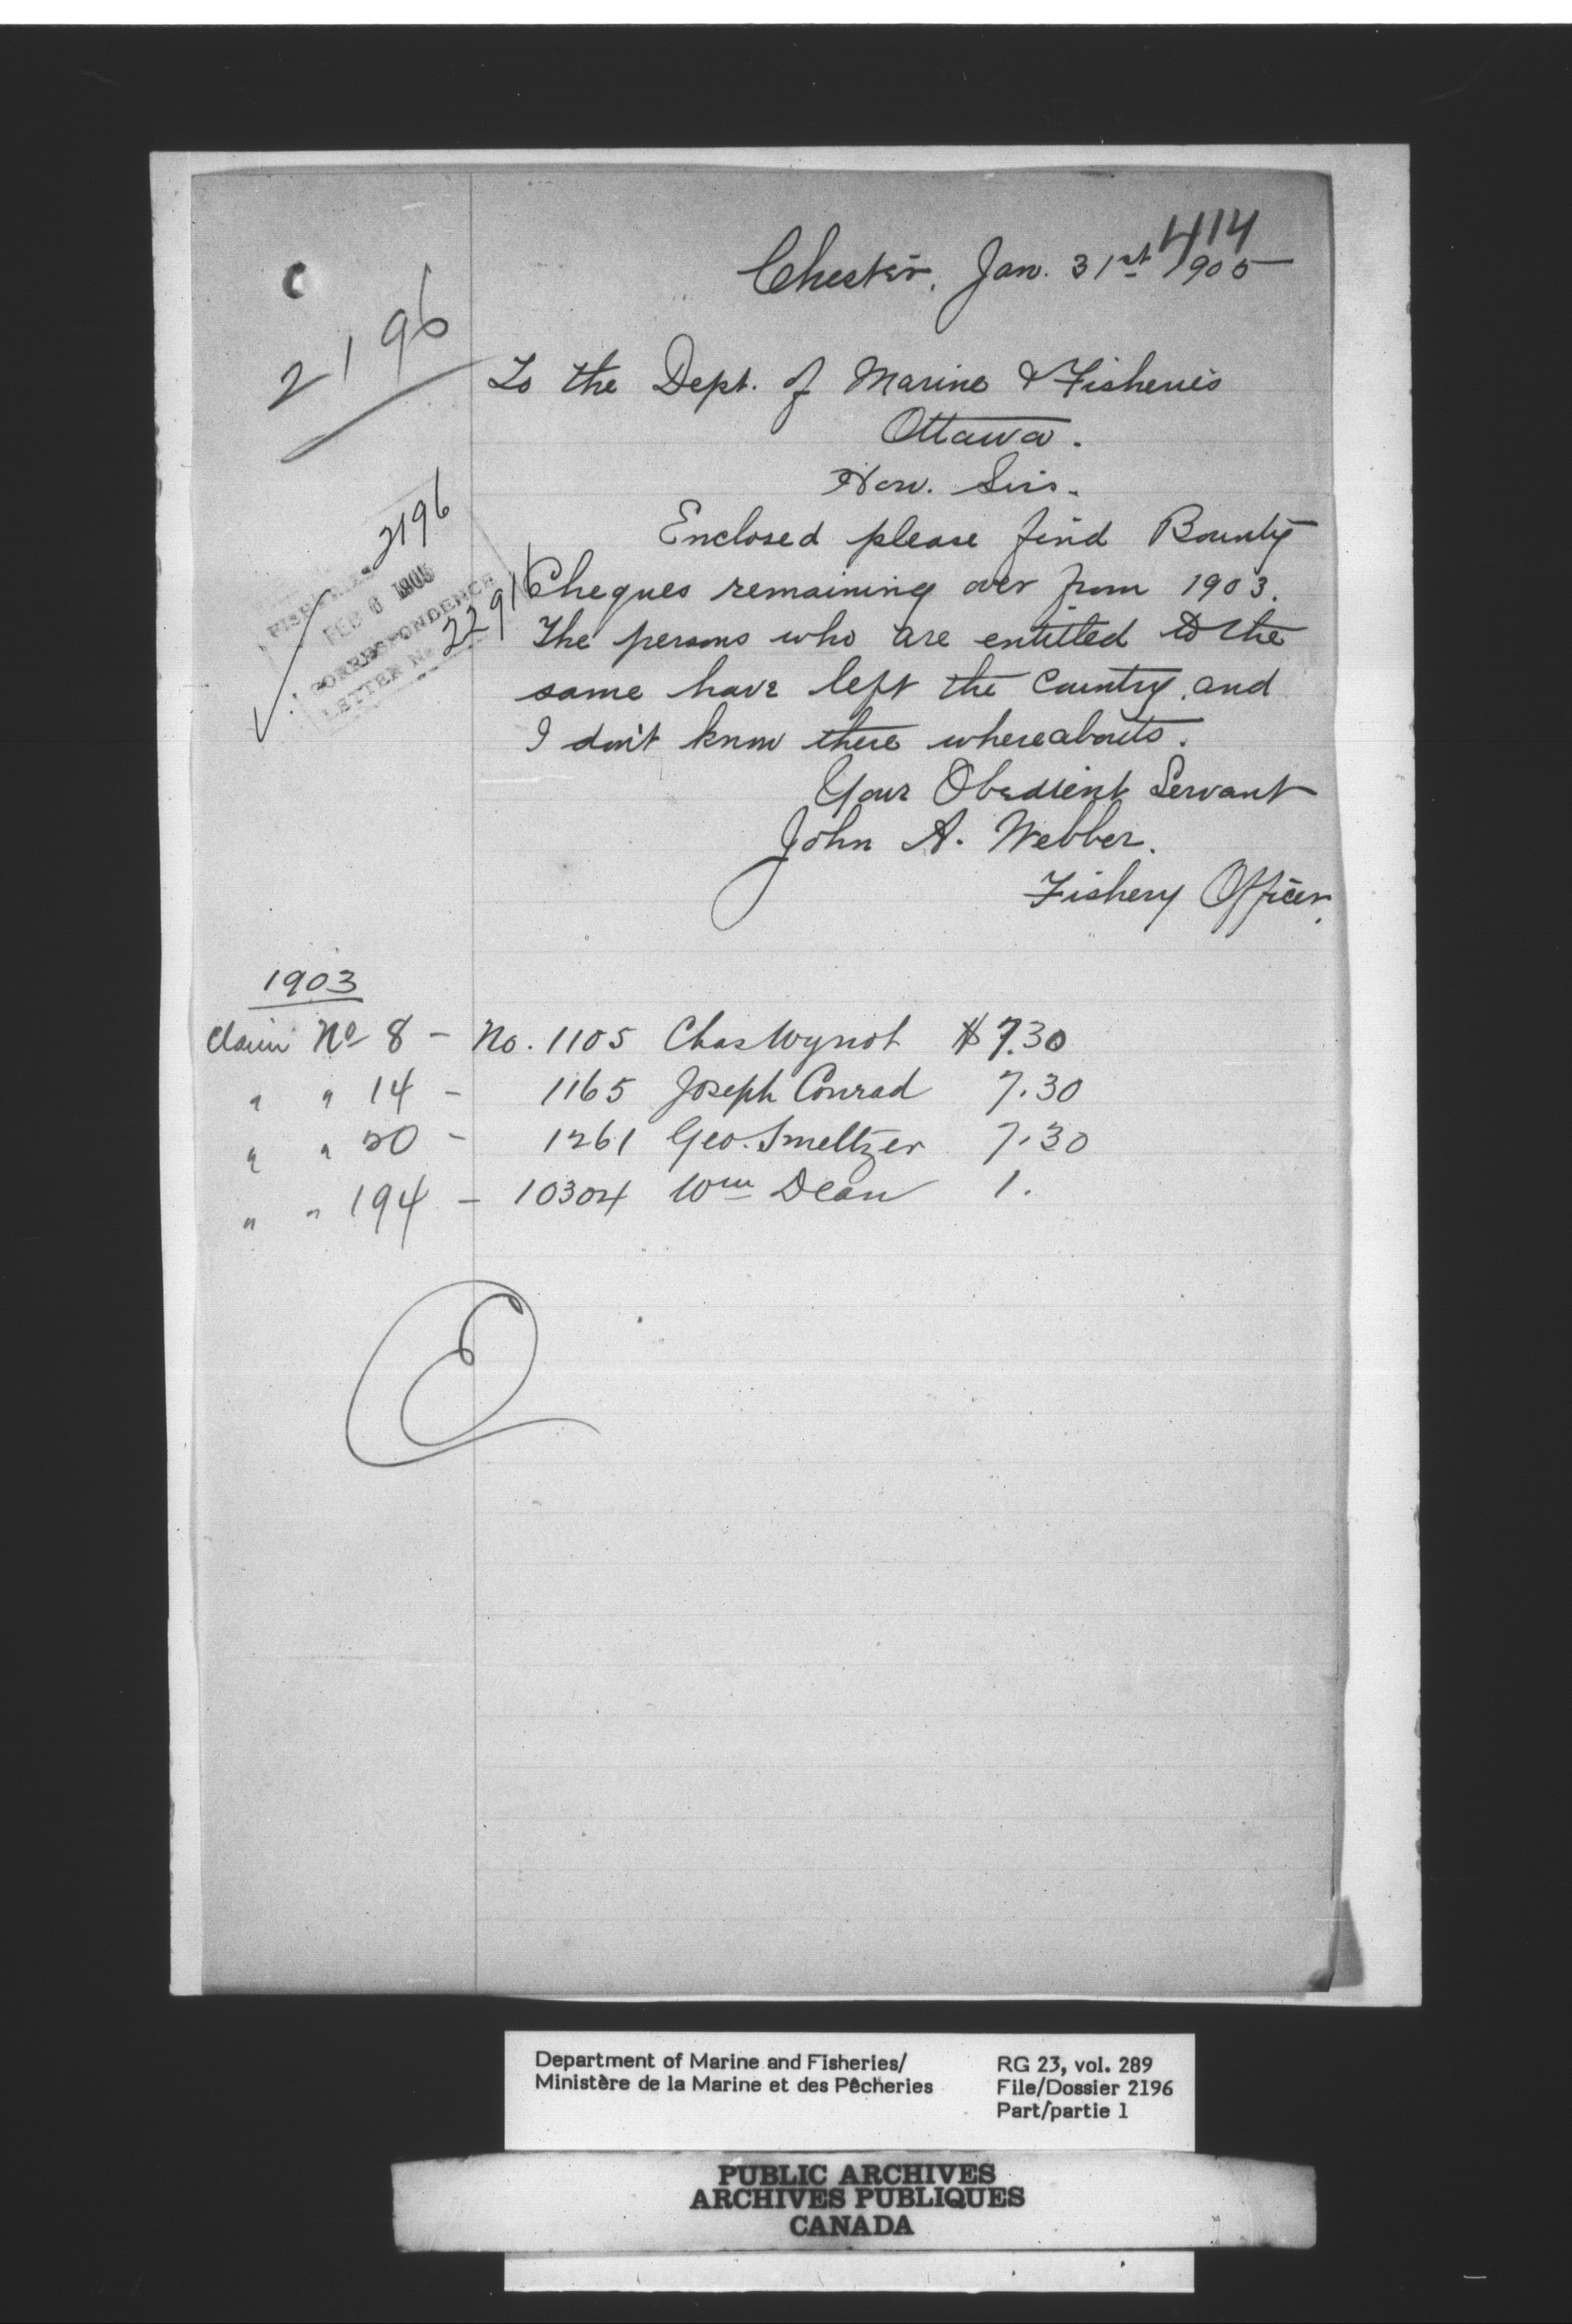 414
Chester, Jan. 31st 1905
C
2196
To the Dept. of Marine & Fisheries
Ottawa.
Hon. Sirs.
Enclosed please find Bounty
Cheques remaining over from 1903.
The persons who are entitled to the
same have left the Country, and
I don't know there whereabouts.
Your Obedient Servant
John A. Webber.
Fishery Officer.
2196
FISHERIES
FEB 6 1905
CORRESPONDENCE
LETTER No 2291
1903
Claim No 8 - No. 1105 Chas Wynot $7.30
" " 14 - 1165 Joseph Conrad 7.30
" " 20 - 1261 Geo. Smeltzer 7.30
" " 194 - 10304 Wm Dean 1.
E
Department of Marine and Fisheries/
Ministère de la Marine et des Pêcheries
RG 23, vol. 289
File/Dossier 2196
Part/partie 1
PUBLIC ARCHIVES
ARCHIVES PUBLIQUES
CANADA